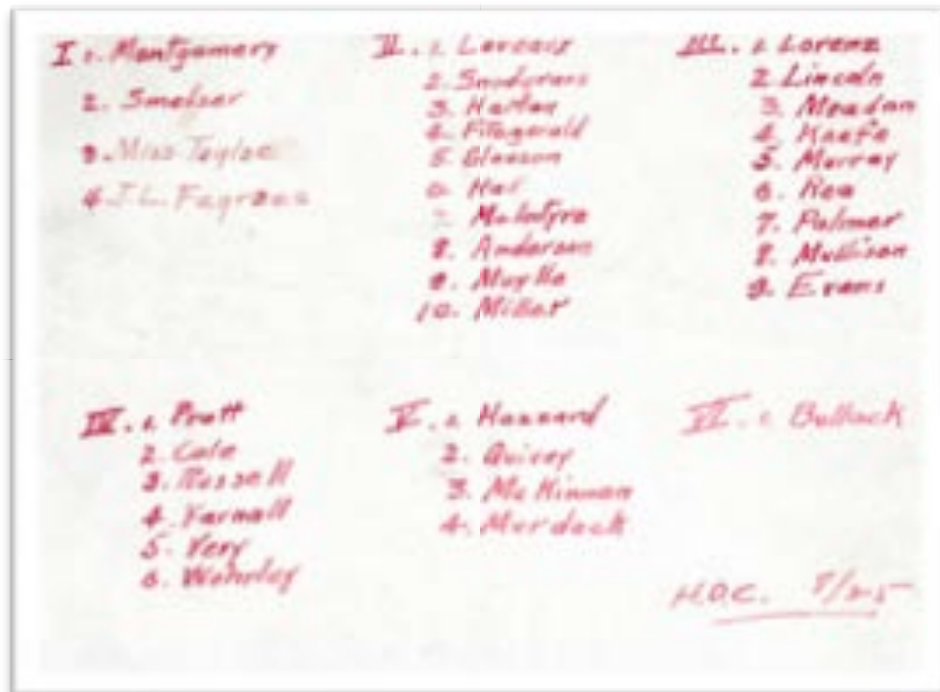 I 1. Montgomery
2. Smelser
3. Miss Taylor
4. J.L.
II. 1.
2.
3.
4. Fitzgerald
5. Gleason
6.
7. McIntyre
8. Anderson
9.
10. Miller
III. 1. Lorenz
2. Lincoln
3.
4. Keefe
5. Murray
6. Rea
7. Palmer
8. Mullison
9. Evans
IV. 1. Pratt
2. Cole
3. Russell
4. Yarnall
5. Very
6. Wehrley
V. 1. Hazzard
2.
3. McKinnon
4. Murdock
VI. 1. Bullock
H.D.C.